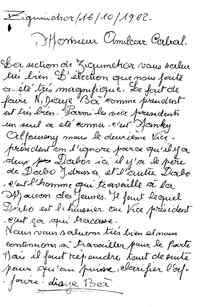 Ziguinchor, 16/10/1962.
Monsieur Amilcar Cabral.
La section de Ziguinchor vous salue
très bien. L'élection que nous faite
a été très magnifique. Le fait de
faire N, Bà comme président
est très bien. Parmi les vice présidents
un seul a été connu c'est
mais le deuxième Vice-
président on l'ignore parce qu'il y a
deux Dabós ià, il y a le père
de Dabo Idrissa et l'autre Dabó
c'est l'homme qui travaille à la
Maison des Jeunes. Il faut lequel
Dabó est il Vice président
c'est ça qui tracasse.
Nous vous saluons très bien et nous
continuons à travailler pour le Parti
Mais il faut répondre tout de suite
pour qu'on puisse clarifier l'af-
faire: